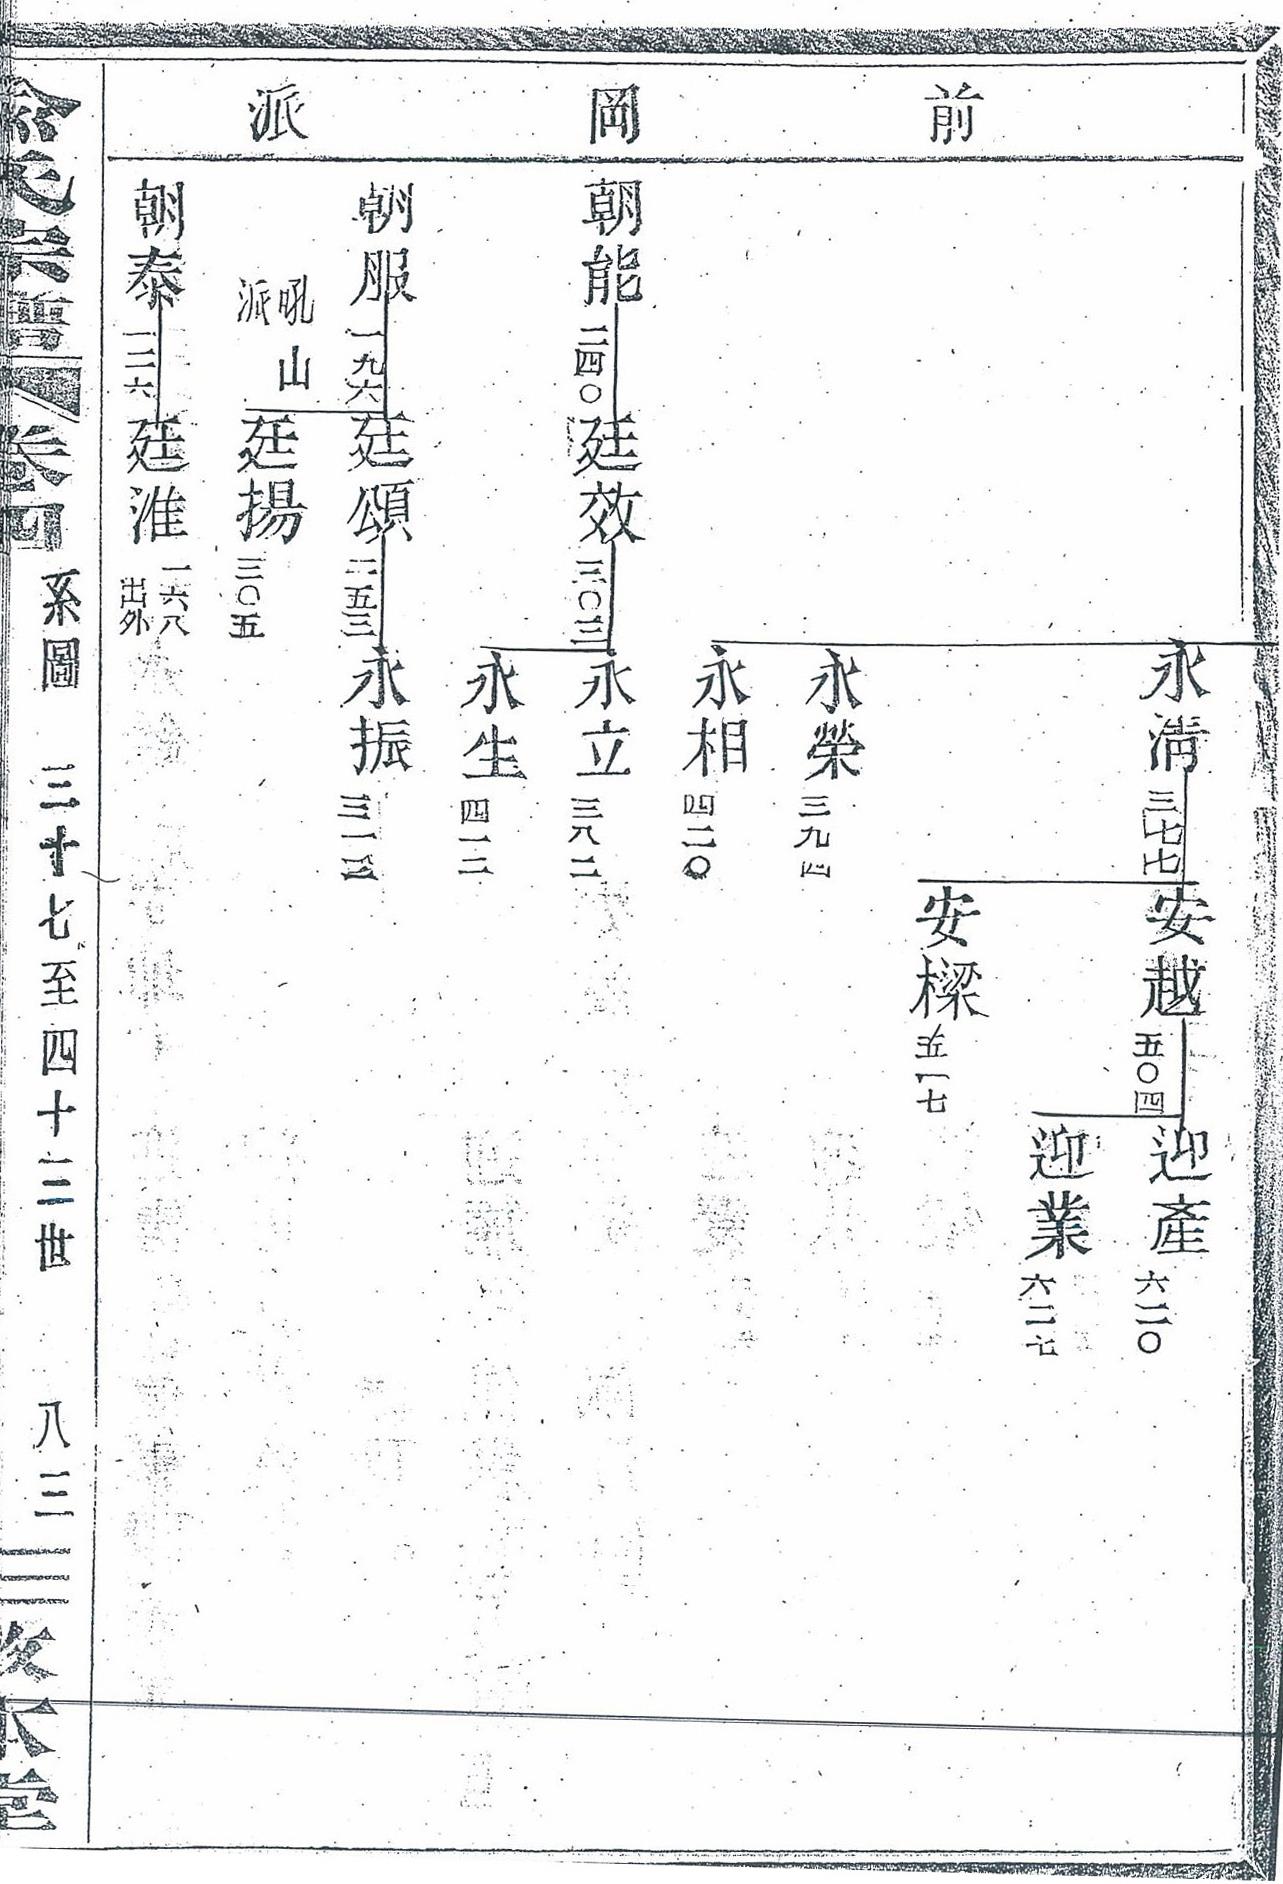 前岡派
永淸
三七七
安越
五〇四
迎產
六二〇
迎業
六二七
安樑
五一七
永榮
三九四
永相
四二〇
朝能
二四〇
廷效
三〇三
永立
三八二
永生
四一二
朝服
一九六
廷頌
二五三
永振
吼山
派
廷揚
三〇五
朝泰
一二六
廷淮
一六八
出外
俞氏宗譜
卷四
系圖
三十七至四十二世
八三
敦本堂